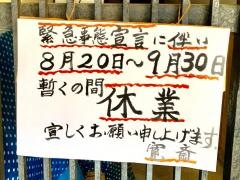 緊急事態宣言に伴い
8月20日〜9月30日
暫くの間 休業
宜しくお願い申し上げます